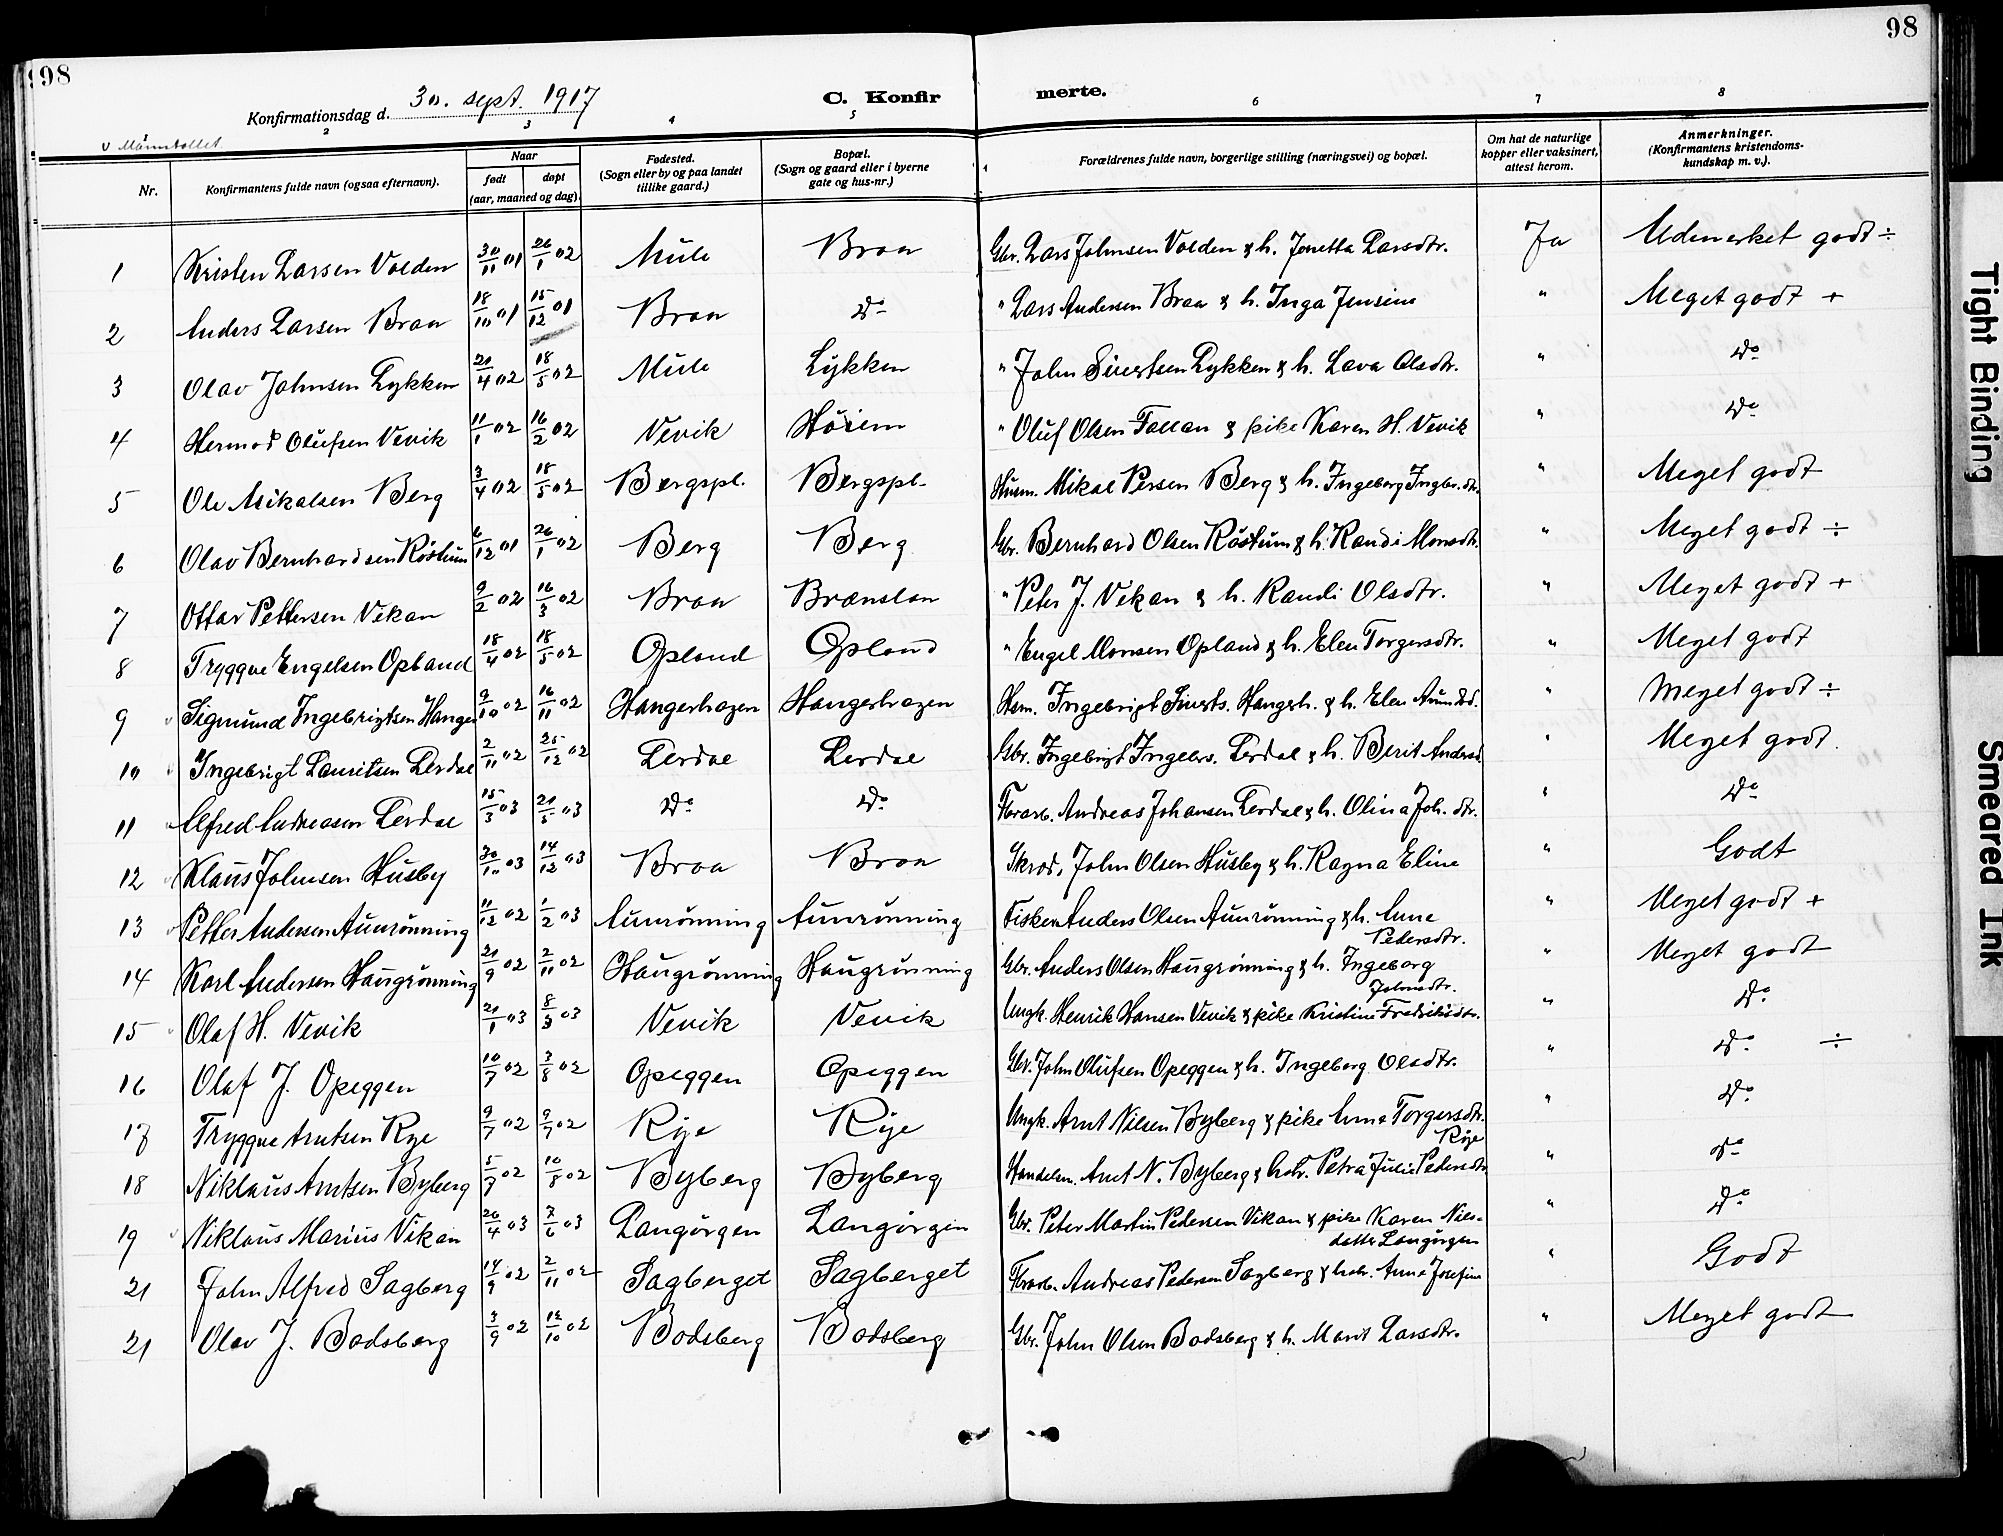 98
98
Konfirmationsdag d. 30. sept. 1917
C. Konfirmerte.
v Manntallet
2 3 4 5 6 7 8
Nr.
Konfirmantens fulde navn (ogsaa efternavn).
Naar
født døpt
(aar, maaned og dag).
Fødested.
(Sogn eller by og paa landet
tillike gaard.)
Bopæl.
(Sogn og gaard eller i byerne
gate og hus-nr.)
Forældrenes fulde navn, borgerlige stilling (næringsvei) og bopæl.
Om hat de naturlige
kopper eller vaksinert,
attest herom.
Anmerkninger.
(Konfirmantens kristendoms-
kundskap m. v.).
1 Kristen Larsen Volden 30/11 01 26/1 02 Mule Braa Gbr. Lars Johnsen Volden & h. Jonetta Larsdtr. Ja Udmerket godt ÷
2 Anders Larsen Braa 18/10 01 15/12 01 Braa Do " Lars Andersen Braa & h. Inga Jensine " Meget godt +
3 Olav Johnsen Lykken 21/4 02 18/5 02 Mule Lykken " John Sivertsen Lykken & h. Lava Olsdtr. " Do
4 Hermod Olufsen Vevik 11/1 02 16/2 02 Vevik Hoiem " Oluf Olsen & pike Karen H. Vevik " Do
5 Ole Mikalsen Berg 3/4 02 18/5 02 Bergspl. Bergspl. Husm. Mikal Persen Berg & h. Ingeborg Ingbr.dtr. " Meget godt
6 Olav Bernhardsen Röstum 6/12 01 26/1 02 Berg Berg Gbr. Bernhard Olsen Röstum & h. Randi Monsdtr. " Meget godt ÷
7 Ottar Pettersen Vekan 9/2 02 16/3 02 Braa " Peter J. Vekan & h. Randi Olsdtr. " Meget godt +
8 Tryggve Engelsen Opland 18/4 02 18/5 02 Opland Opland " Engel Monsen Opland & h. Elen Torgersdtr. " Meget godt
9 Sigmund Ingebrigtsen Hanger 9/10 02 16/11 02 Hangerhagen Hangerhagen Hsm. Ingebrigt Siverts. Hangerh. & h. Elen " Meget godt ÷
10 Ingebrigt Lauritsen Lerdal 2/11 02 25/12 02 Lerdal Lerdal Gbr. Ingebrigt Ingebrs. Lerdal & h. Berit Andersd. " Meget godt.
11 Alfred Andreasen Lerdal 15/3 03 21/5 03 Do Do Andreas Johansen Lerdal & h. Olina Joh.dtr. " Do
12 Klaus Johnsen Husby 30/10 03 14/12 03 Braa Braa Skræd. John Olsen Husby & h. Ragna Eline " Godt
13 Petter Andersen Aunrønning 11/12 02 1/2 03 Aunrønning Aunrønning Fisker Anders Olsen Aunrønning & h. Anne
Pedersdtr. " Meget godt +
14 Karl Andersen Haugrønning 21/9 02 2/11 02 Haugrønning Haugrønning Gbr. Anders Olsen Haugrønning & h. Ingeborg
Johnsdtr. " Meget godt
15 Olaf H. Vevik 21/1 03 8/3 03 Vevik Vevik Ungk. Henrik Hansen Vevik & pike Kristine Fredriksdtr. " Do
16 Olaf J. Opeggen 10/7 02 3/8 02 Opeggen Opeggen Gbr. John Olufsen Opeggen & h. Ingeborg Olsdtr. " Do ÷
17 Tryggve Arntsen Rye 9/7 02 9/7 02 Rye Rye Ungk. Arnt Nilsen Byberg & pike Anna Torgersdtr.
Rye " Do
18 Niklaus Arntsen Byberg 5/7 02 10/8 02 Byberg Byberg Handelsm. Arnt N. Byberg & hstr. Petra Julie Pedersdtr. " Do
19 Niklaus Marius Vikan 26/4 03 7/6 03 Langørgen Langørgen Gbr. Peter Martin Pedersen Vikan & pike Karen Nils-
datter Langørgen " Do
21 John Alfred Sagberg 14/9 02 2/11 02 Sagberget Sagberget Andreas Pedersen Sagberg & hstr. Anna Josefine " Godt
21 Olav J. Bodsberg 3/9 02 12/10 02 Bodsberg Bodsberg Gbr. John Olsen Bodsberg & h. Marit Larsdtr. " Meget godt
Tight Binding
Smeared Ink